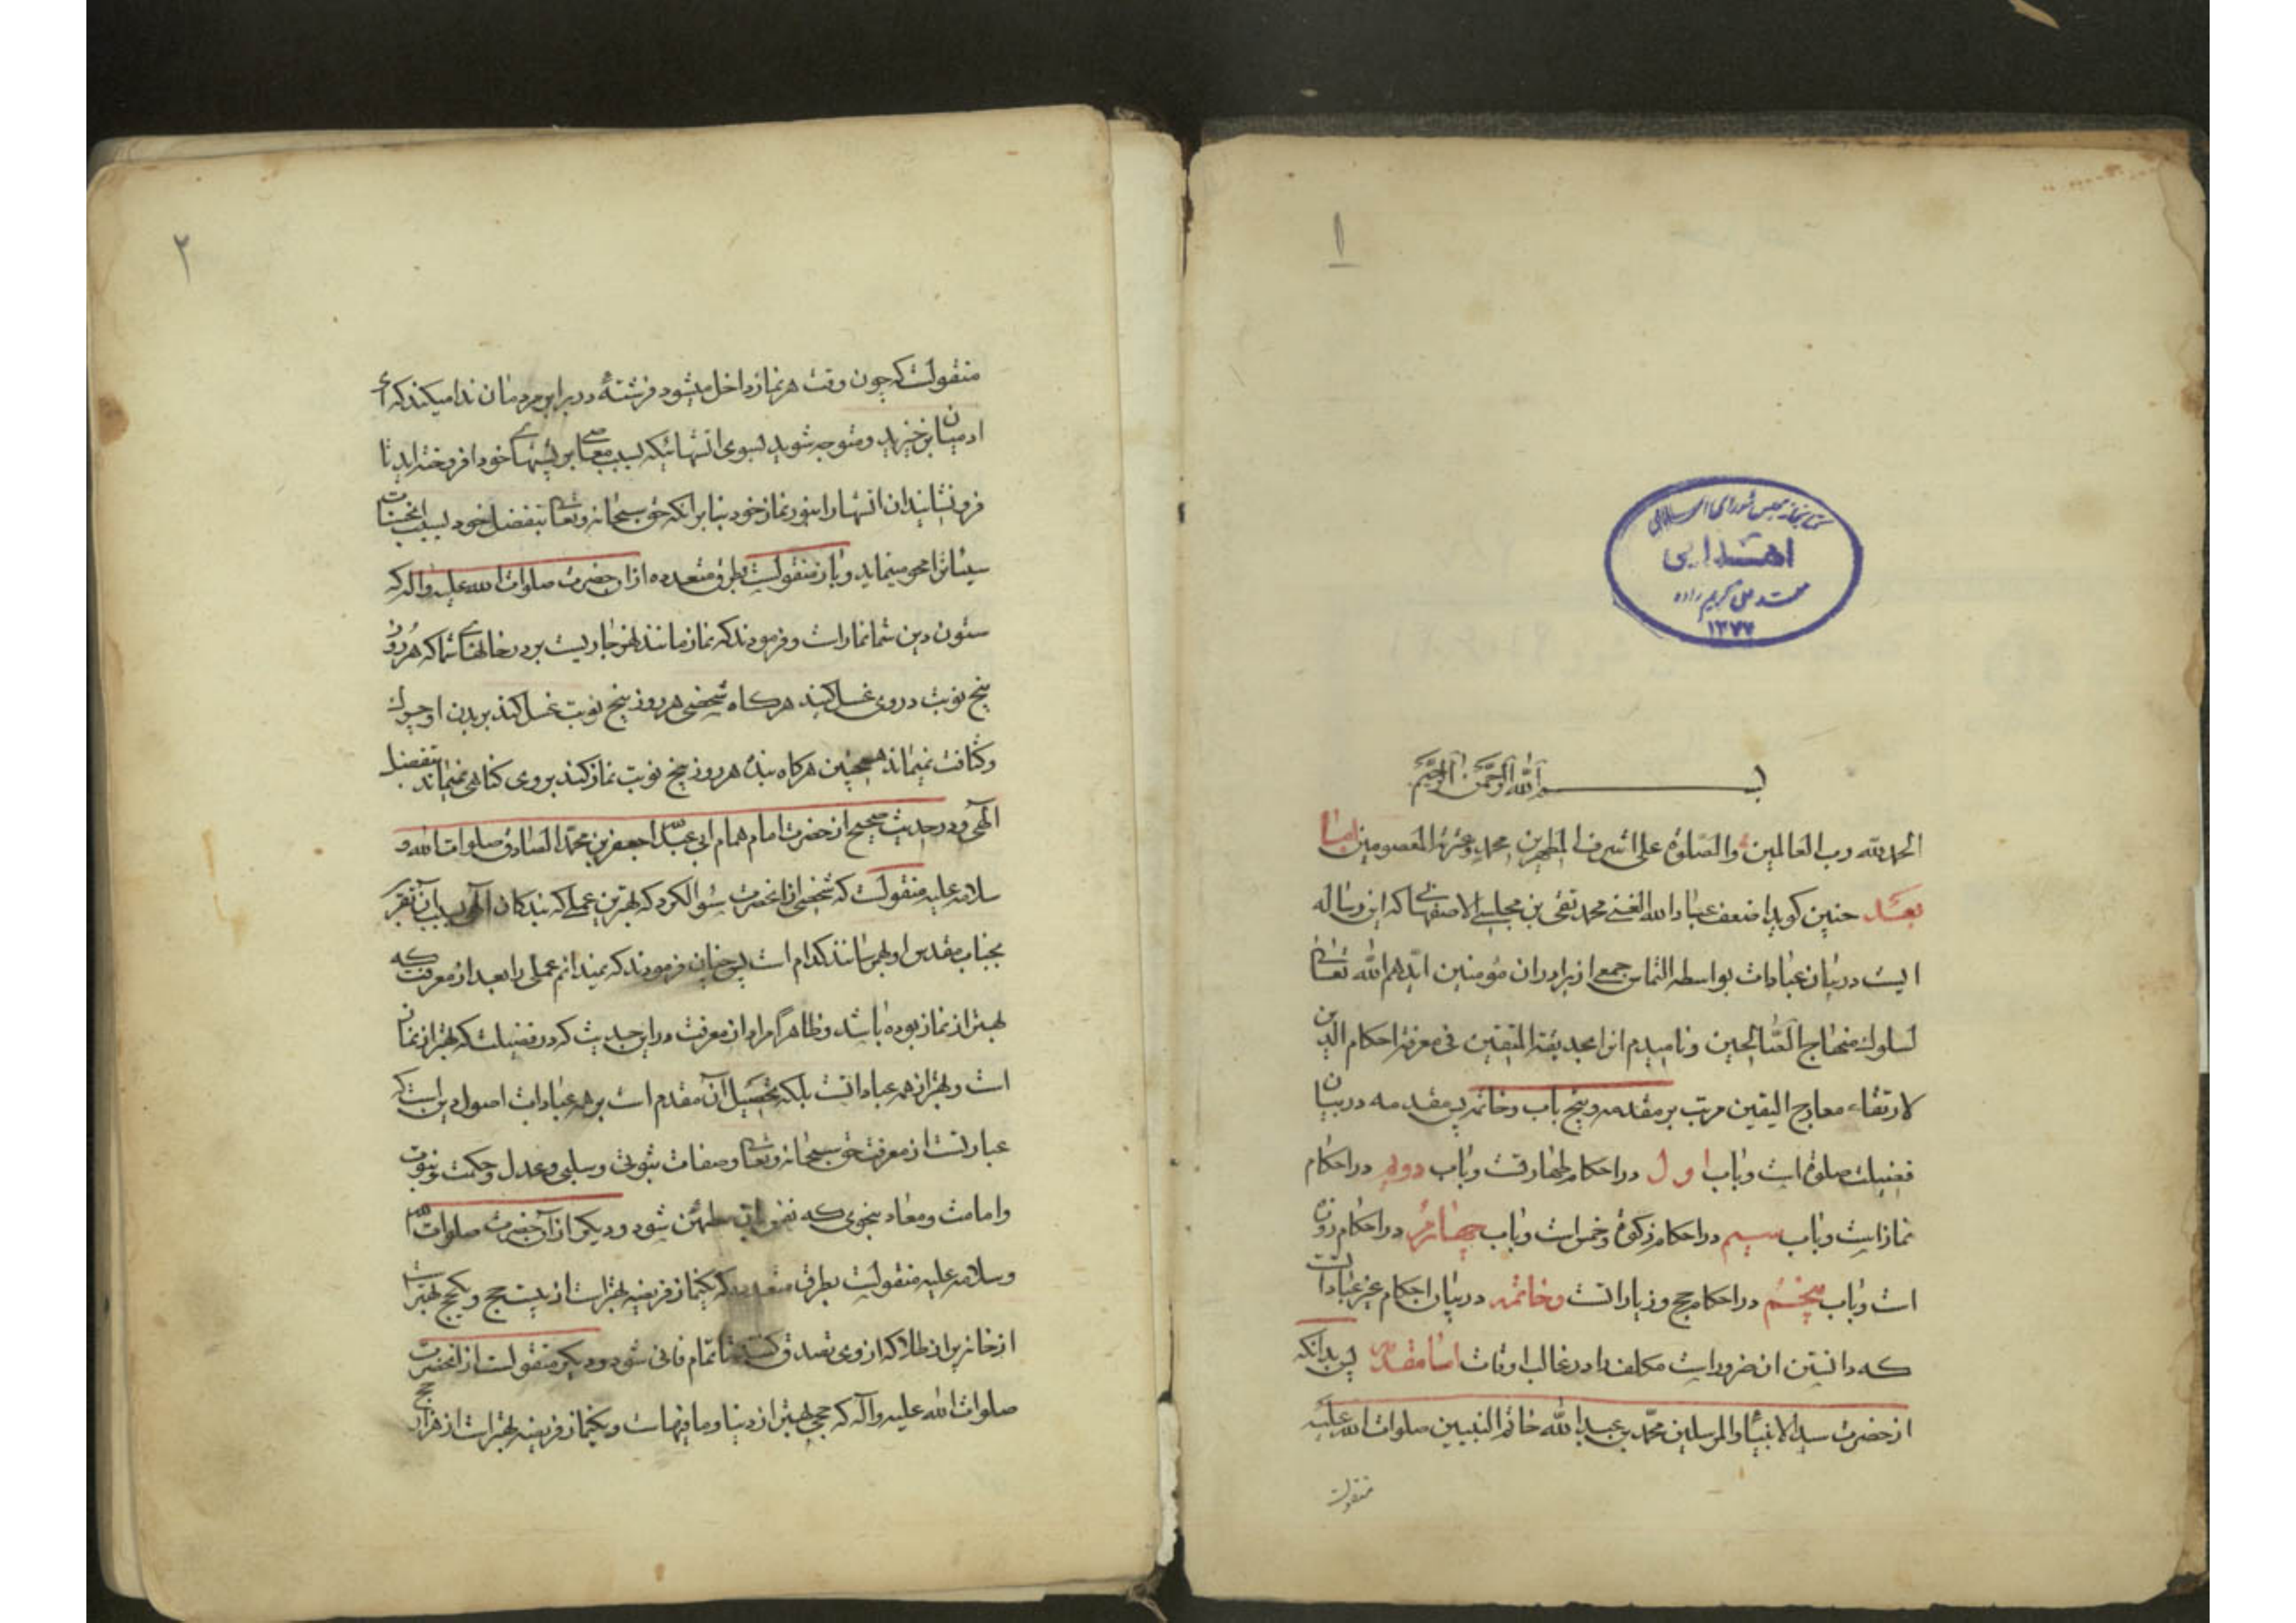 ۱
کتابخانه مجلس شورای اسلامی
اهدایی
محمد علی کریم زاده
۱۳۷۷
بسم الله الرحمن الرحیم
الحمد لله رب العالمین والصلوة علی اشرف المطهرین محمد وعترته المعصومین اما
بعد چنین کوید اضعف عباد الله الغنی محمد تقی بن مجلسی الاصفهانی که این رساله
ایست در بیان عبادات بواسطه التماس جمعی از برادران مؤمنین ایدهم الله تعالی
لسلوک منهاج الصالحین و نامیدم انرا بحدیقة المتقین فی معرفة احکام الدین
لارتقاء معارج الیقین مرتب بر مقدمه و پنج باب و خاتمه پس مقدمه در بیان
فضیلت صلوة است و باب اول در احکام طهارتست و باب دویم در احکام
نماز است و باب سیم در احکام زکوة و خمس است و باب چهارم در احکام روزه
است و باب پنجم در احکام حج و زیاراتست و خاتمه در بیان احکام غیر عباداتست
که دانستن ان ضروراست مکلف را در غالب اوقات اما مقدمه پس بدانکه
از حضرت سید الانبیاء والمرسلین محمد بن عبد الله خاتم النبیین صلوات الله علیه
منقولست
۲
منقولست که چون وقت هر نماز داخل میشود فرشتهٔ در برابر مردمان ندا میکند که ای
ادمیان برخیزید و متوجه شوید بسوی اتشهائیکه بسبب معاصی بر پشتهای خود افروخته اید تا
فرو نشانیدان اتشها را بنور نماز خود بنابر انکه حق سبحانه وتعالی بتفضل خود بسبب انحسنات
سیئاترا محو مینماید و باز منقولست بطرق متعدده ازان حضرت صلوات الله علیه واله که
ستون دین شما نماز است و فرمودند که نماز مانند نهر جاریست بر در خانهای شما که هر روز
پنج نوبت در وی غسل کنید هرکاه شخصی هر روز پنج نوبت غسل کند بر بدن او چرک
وکثافت نمیماند همچنین هرکاه بنده هر روز پنج نوبت نماز کند بر وی کناهی نمیماند بتفضل
الهی و در حدیث صحیح از حضرت امام همام ابی عبد الله جعفر بن محمد الصادق صلوات الله و
سلامه علیه منقولست که شخصی از انحضرت سؤال کرد که بهترین عملی که بندکان الهی بسبب آن تقرب
بجناب مقدس او بهمرسانند کدام است پس چنان فرمودند که نمیدانم عملی را بعد از معرفت که
بهتر از نماز بوده باشد و ظاهرا مراد از معرفت در این حدیث که در فضیلت که بهتر از نماز
است و بهتر از همه عباداتست بلکه تحصیل آن مقدم است بر همه عبادات اصول دین است که
عبارتست از معرفت حق سبحانه وتعالی و صفات ثبوتی و سلبی و عدل و حکمت و نبوت
و امامت و معاد بنحوی که نفس بان مطمئن شود و دیکر از آن حضرت صلوات الله
وسلامه علیه منقولست بطرق متعدده که یکنماز فریضه بهتر است از بیست حج و یکحج بهتر است
از خانه پر از طلا که از وی تصدق کنند تا تمام فانی شود و دیکر منقولست از انحضرت
صلوات الله علیه وآله که حجی بهتر از دنیا و ما فیهاست و یکنماز فریضه بهتر است از هزار حج